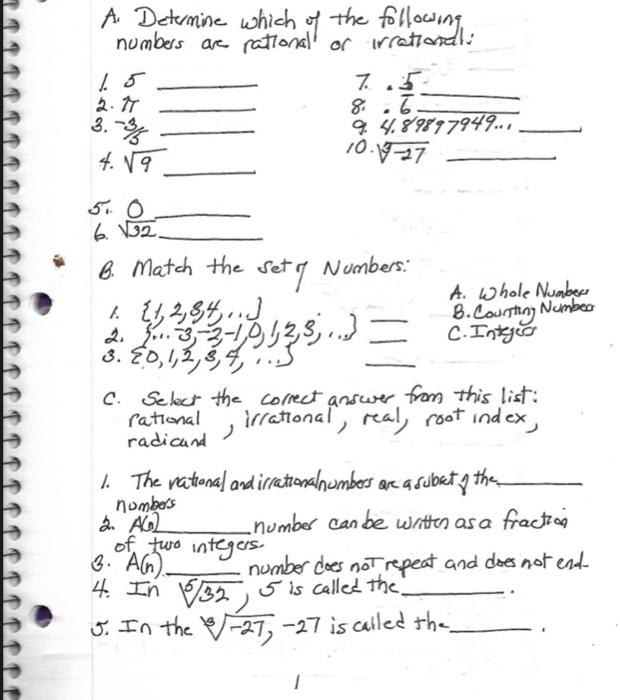 A. Determine which of the following
numbers are rational or irrational:
1. 5 ______
2. π ______
3. -3/5 ______
4. √9 ______
5. 0 ______
6. √32 ______
7. .5 ______
8. .6̅ ______
9. 4.89897949... ______
10. ∛-27 ______
B. Match the set of Numbers:
1. {1,2,3,4,...} ___
2. {...-3,-2,-1,0,1,2,3,...} ___
3. {0,1,2,3,4,...} ___
A. Whole Numbers
B. Counting Numbers
C. Integers
C. Select the correct answer from this list:
rational, irrational, real, root index,
radicand
1. The rational and irrational numbers are a subset of the ______
numbers
2. A(n) ______ number can be written as a fraction
of two integers.
3. A(n) ______ number does not repeat and does not end.
4. In ⁵√32, 5 is called the ______.
5. In the ∛-27, -27 is called the ______.
1